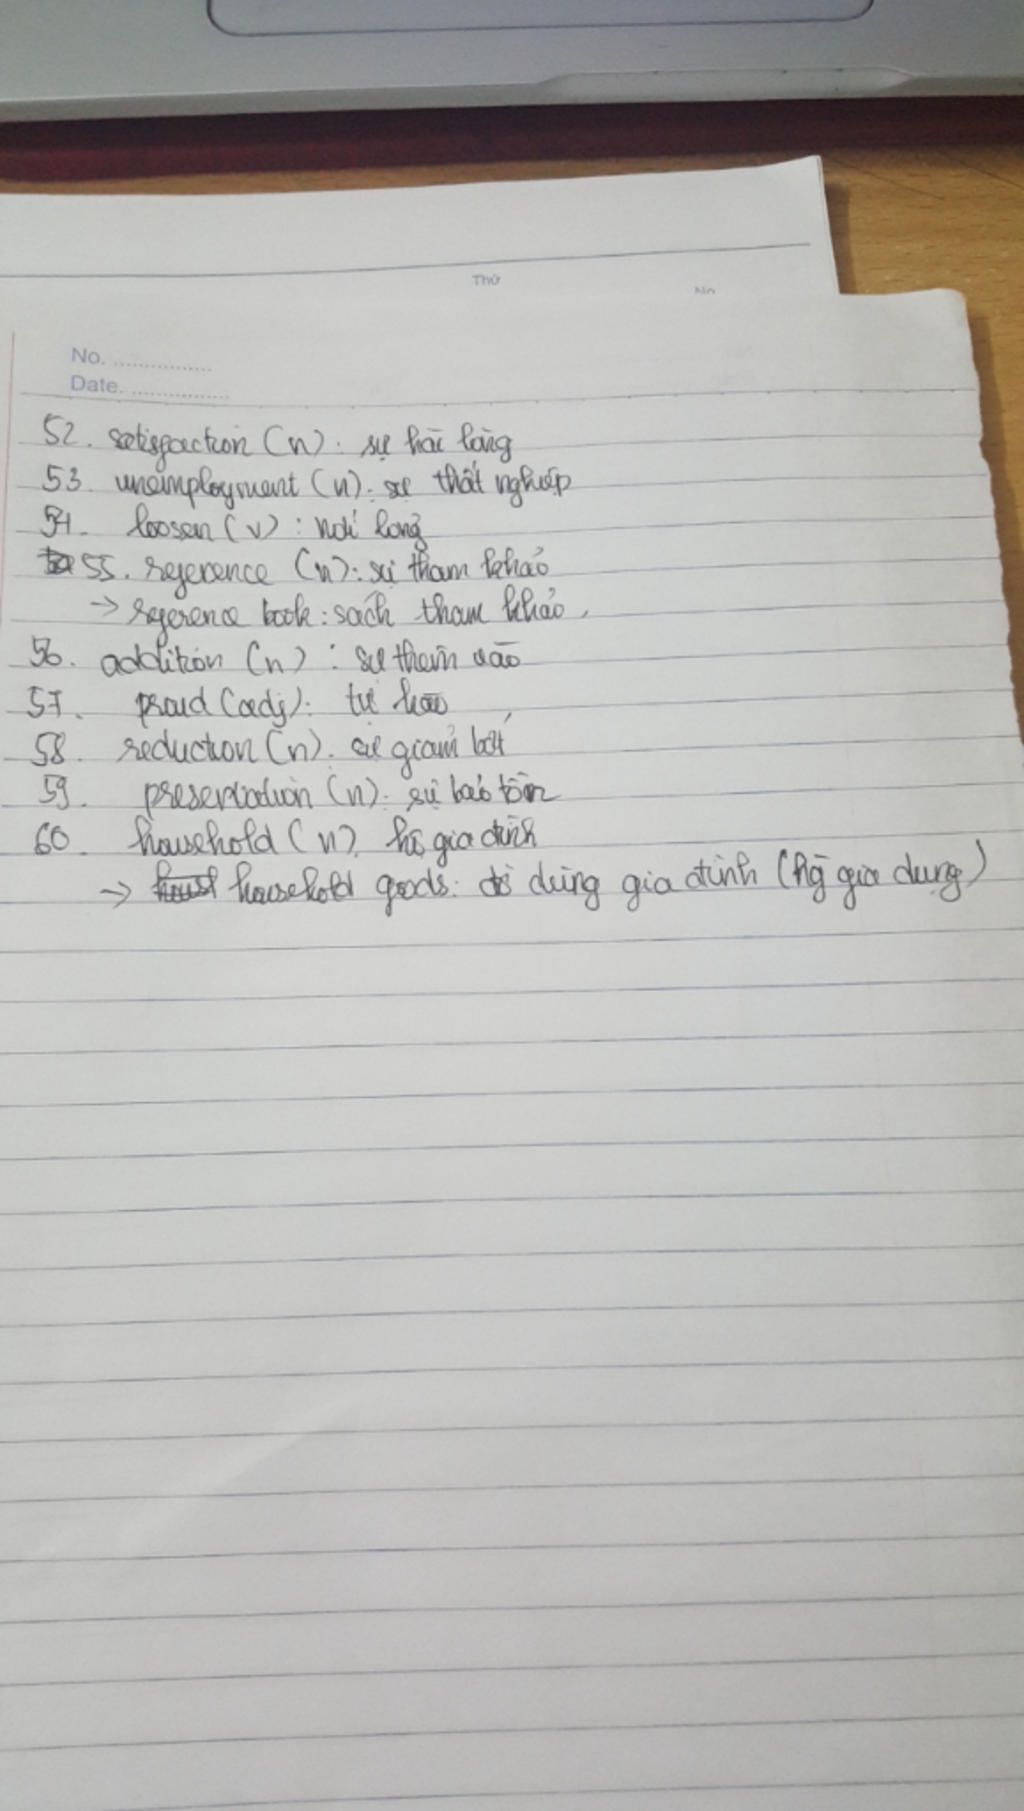 Thứ
No
No. ................
Date. ................
52. satisfaction (n): sự hài lòng
53. unemployment (n): sự thất nghiệp
54. loosen (v): nới lỏng
55. reference (n): sự tham khảo
→ reference book: sách tham khảo.
56. addition (n): sự thêm vào
57. proud (adj): tự hào
58. reduction (n): sự giảm bớt
59. preservation (n): sự bảo tồn
60. household (n). hộ gia đình
→ household goods: đồ dùng gia đình (hg gia dụng)